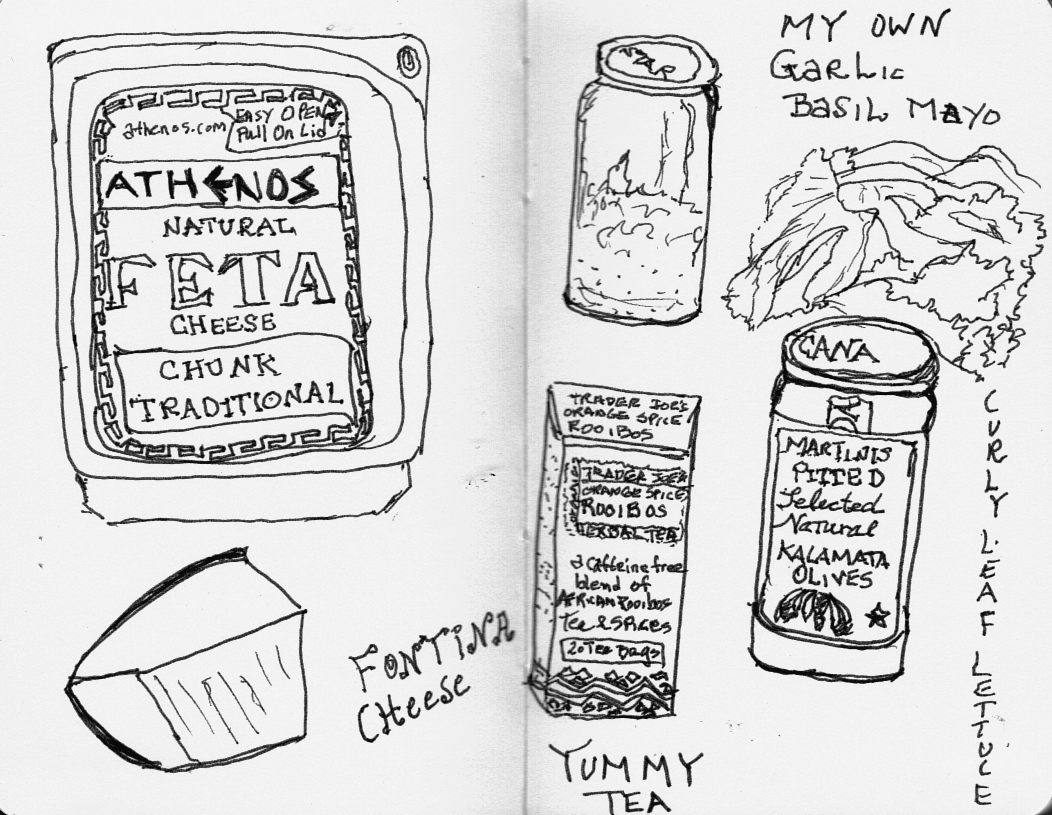 athenos.com
EASY OPEN
Pull On Lid
ATHENOS
NATURAL
FETA
CHEESE
CHUNK
TRADITIONAL
FONTINA
CHeese
MY OWN
GARLIC
BASIL MAYO
CURLY LEAF LETTUCE
TRADER JOE'S
ORANGE SPICE
ROOIBOS
TRADER JOE'S
ORANGE SPICE
ROOIBOS
HERBAL TEA
a caffeine free
blend of
AFRICAN Rooibos
Tea & SPICES
20 Tea Bags
YUMMY
TEA
MARTINIS
PITTED
Selected
Natural
KALAMATA
OLIVES